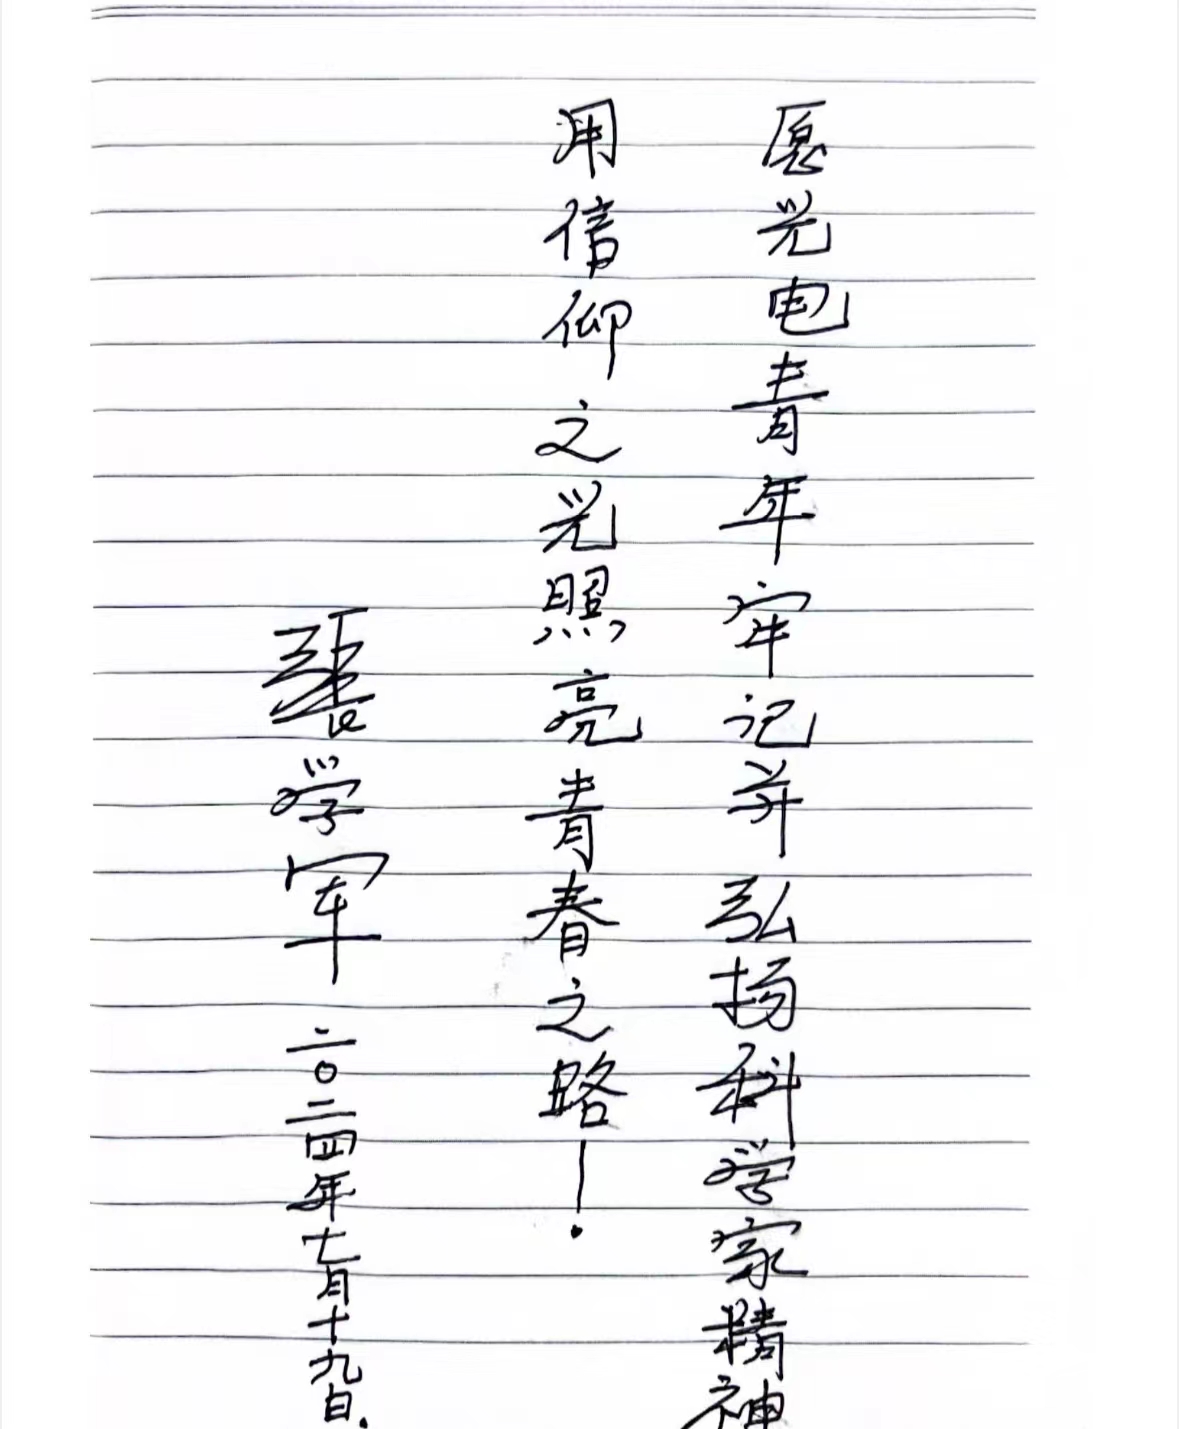 愿光电青年牢记并弘扬科学家精神
用信仰之光照亮青春之路！
張学军 二〇二四年七月十九日.